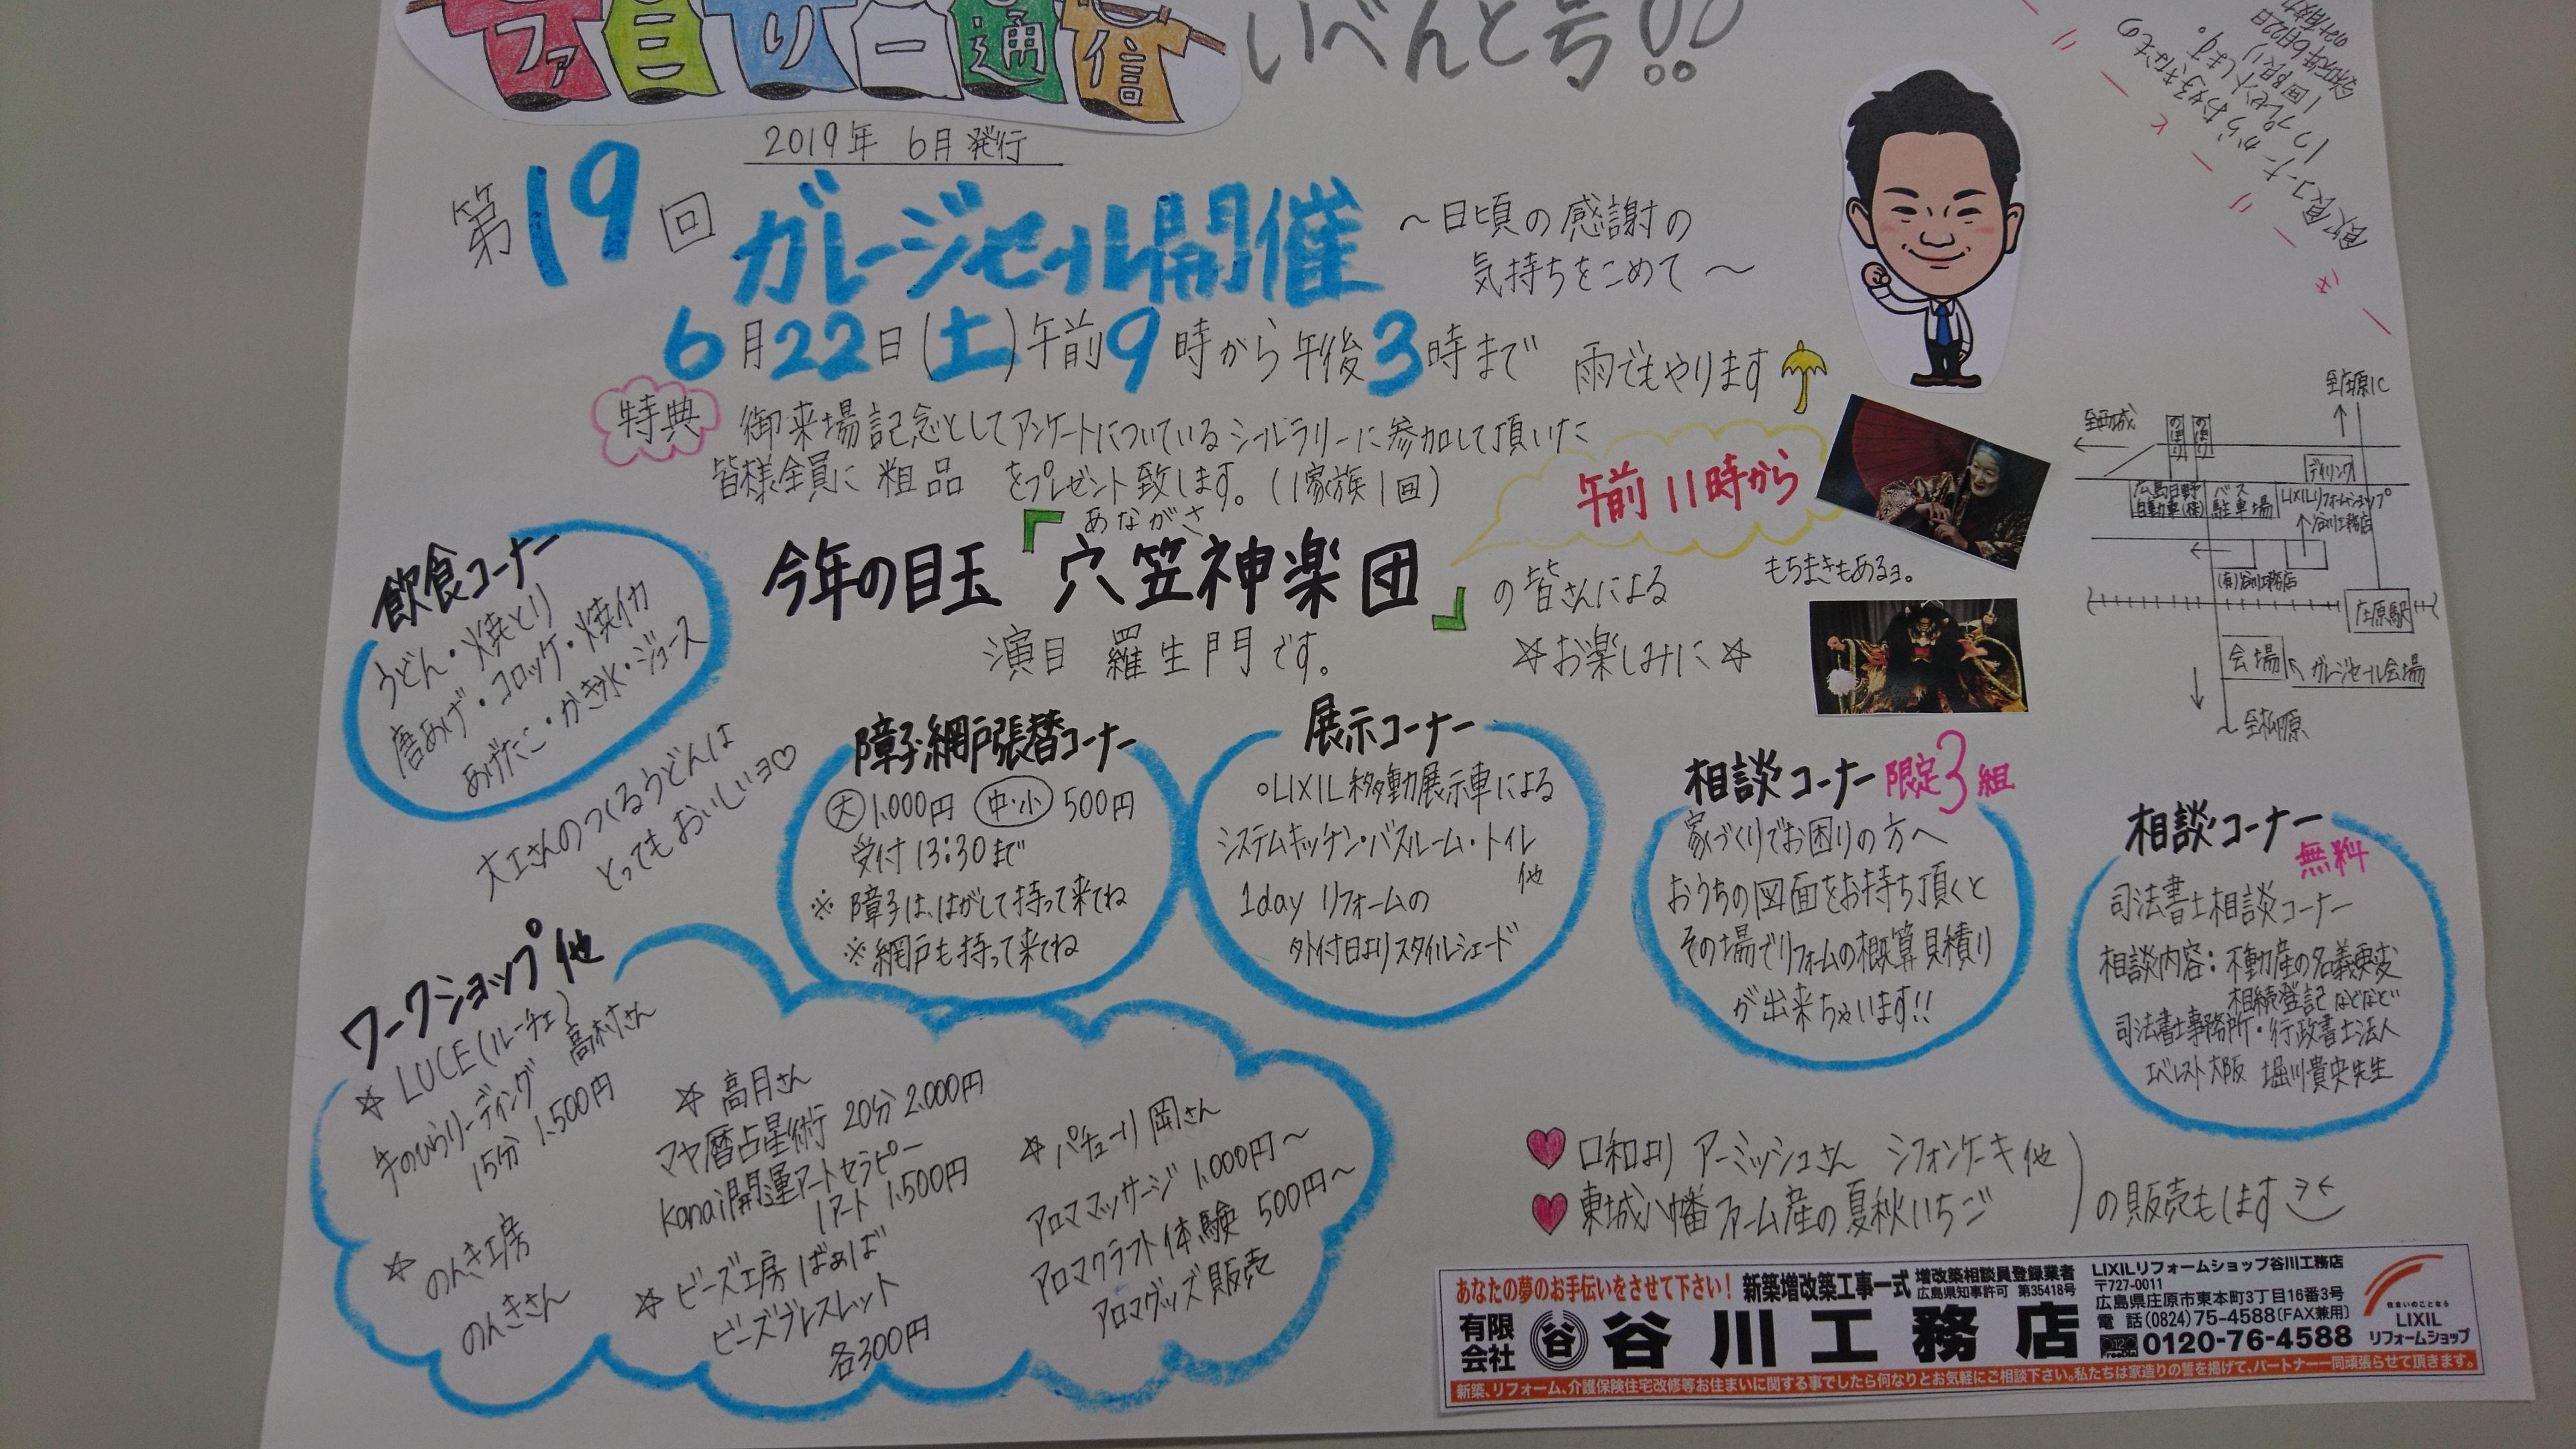 ファミリー通信
いべんと号!!
2019年 6月発行
第19回 ガレージセール開催
〜日頃の感謝の
気持ちをこめて〜
6月22日(土)午前9時から午後3時まで 雨でもやります
特典 御来場記念としてアンケートについているシールラリーに参加して頂いた
皆様全員に 粗品 をプレゼント致します。(1家族1回)
飲食コーナーからお好きなもの
1つプレゼントします。
1回限り
令和元年6月22日
キリトリ
午前11時から
あながさ
今年の目玉『穴笠神楽団』の皆さんによる
もちまきもあるヨ。
演目 羅生門です。
☆お楽しみに☆
至庄原IC
至西城
のぼり
のぼり
デイリンク
広島日野自動車(株)
バス駐車場
LIXILリフォームショップ
谷川工務店
(有)谷川工務店
庄原駅
会場
ガレージセール会場
〜至柳原
飲食コーナー
うどん・焼とり
唐あげ・コロッケ・焼イカ
あげたこ・かき氷・ジュース
大工さんのつくるうどんは
とってもおいしいヨ♡
障子・網戸張替コーナー
大 1.000円 中・小 500円
受付 13:30まで
※障子は、はがして持って来てね
※網戸も持って来てね
展示コーナー
○LIXIL移動展示車による
システムキッチン・バスルーム・トイレ
他
1day リフォームの
外付日よけスタイルシェード
相談コーナー 限定3組
家づくりでお困りの方へ
おうちの図面をお持ち頂くと
その場でリフォームの概算見積り
が出来ちゃいます!!
相談コーナー
無料
司法書士相談コーナー
相談内容：不動産の名義変更
相続登記などなど
司法書士事務所・行政書士法人
エベレスト大阪 堀川貴央先生
ワークショップ他
☆LUCE(ルーチェ)
高村さん
手のひらリーディング
15分 1.500円
☆のんき工房
のんきさん
☆高月さん
マヤ暦占星術 20分 2.000円
Kanai開運アートセラピー
1アート 1.500円
☆ビーズ工房 ばぁば
ビーズブレスレット
各300円
☆パチューリ 岡さん
アロママッサージ 1.000円〜
アロマクラフト体験 500円〜
アロマグッズ販売
♥口和より アーミッシュさん シフォンケーキ他
♥東城八幡ファーム産の夏秋いちご
の販売もします
あなたの夢のお手伝いをさせて下さい! 新築増改築工事一式 増改築相談員登録業者
広島県知事許可 第35418号
有限会社 谷 谷川工務店
LIXILリフォームショップ谷川工務店
〒727-0011
広島県庄原市東本町3丁目16番3号
電 話(0824)75-4588(FAX兼用)
0120-76-4588
住まいのことなら
LIXIL
リフォームショップ
新築、リフォーム、介護保険住宅改修等お住まいに関する事でしたら何なりとお気軽にご相談下さい。私たちは家造りの誓を掲げて、パートナー一同頑張らせて頂きます。